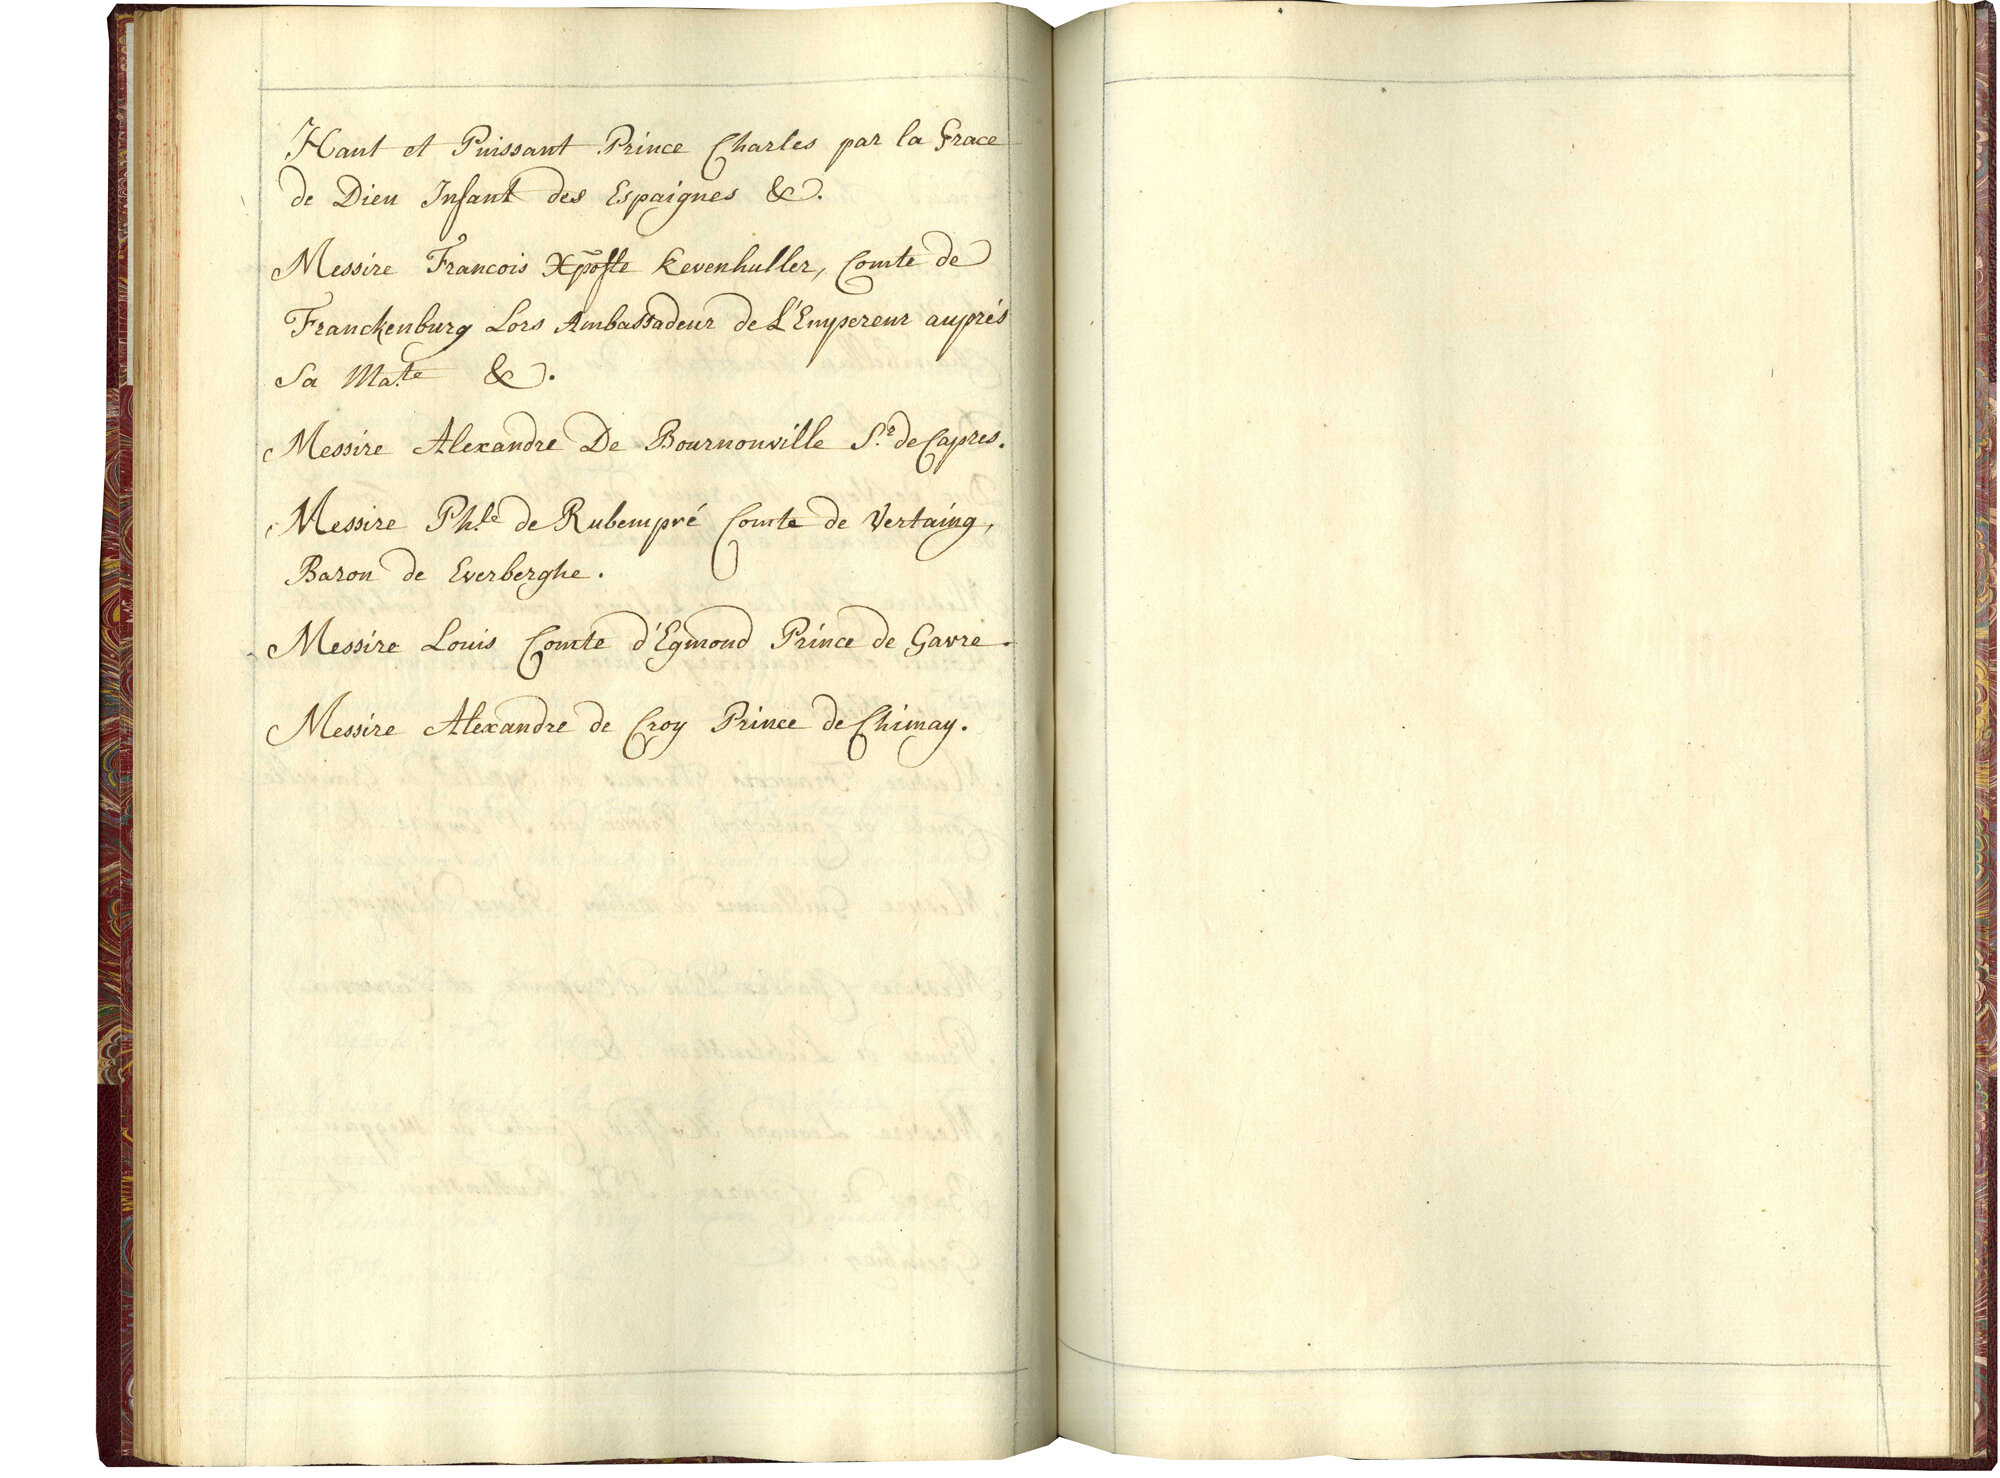 Haut et Puissant Prince Charles par la Grace
de Dieu Infant des Espaignes &.
Messire Francois Xp̄ofle Kevenhuller, Comte de
Franckenburg Lors Ambassadeur de L'Empereur auprés
Sa Ma.te &.
Messire Alexandre De Bournonville S.r de Capres.
Messire Ph.le de Rubempré Comte de Vertaing,
Baron de Everberghe.
Messire Louis Comte d'Egmond Prince de Gavre.
Messire Alexandre de Croy Prince de Chimay.